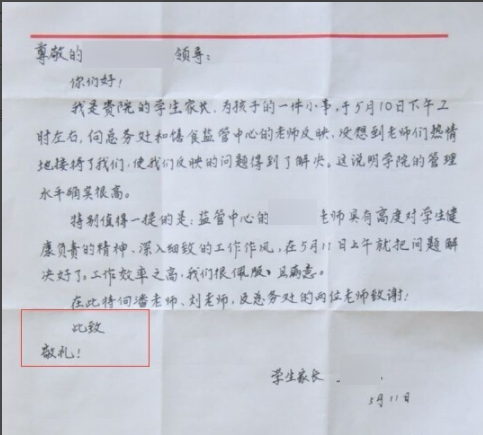 尊敬的 领导：
你们好！
我是贵院的学生家长，为孩子的一件小事，于5月10日下午2
时左右，向总务处和膳食监管中心的老师反映，没想到老师们热情
地接待了我们，使我们反映的问题得到了解决。这说明学院的管理
水平确实很高。
特别值得一提的是：监管中心的 老师具有高度对学生健
康负责的精神、深入细致的工作作风，在5月11日上午就把问题解
决好了。工作效率之高，我们很佩服、且满意。
在此特向潘老师、刘老师，及总务处的两位老师致谢！
此致
敬礼！
学生家长
5月11日